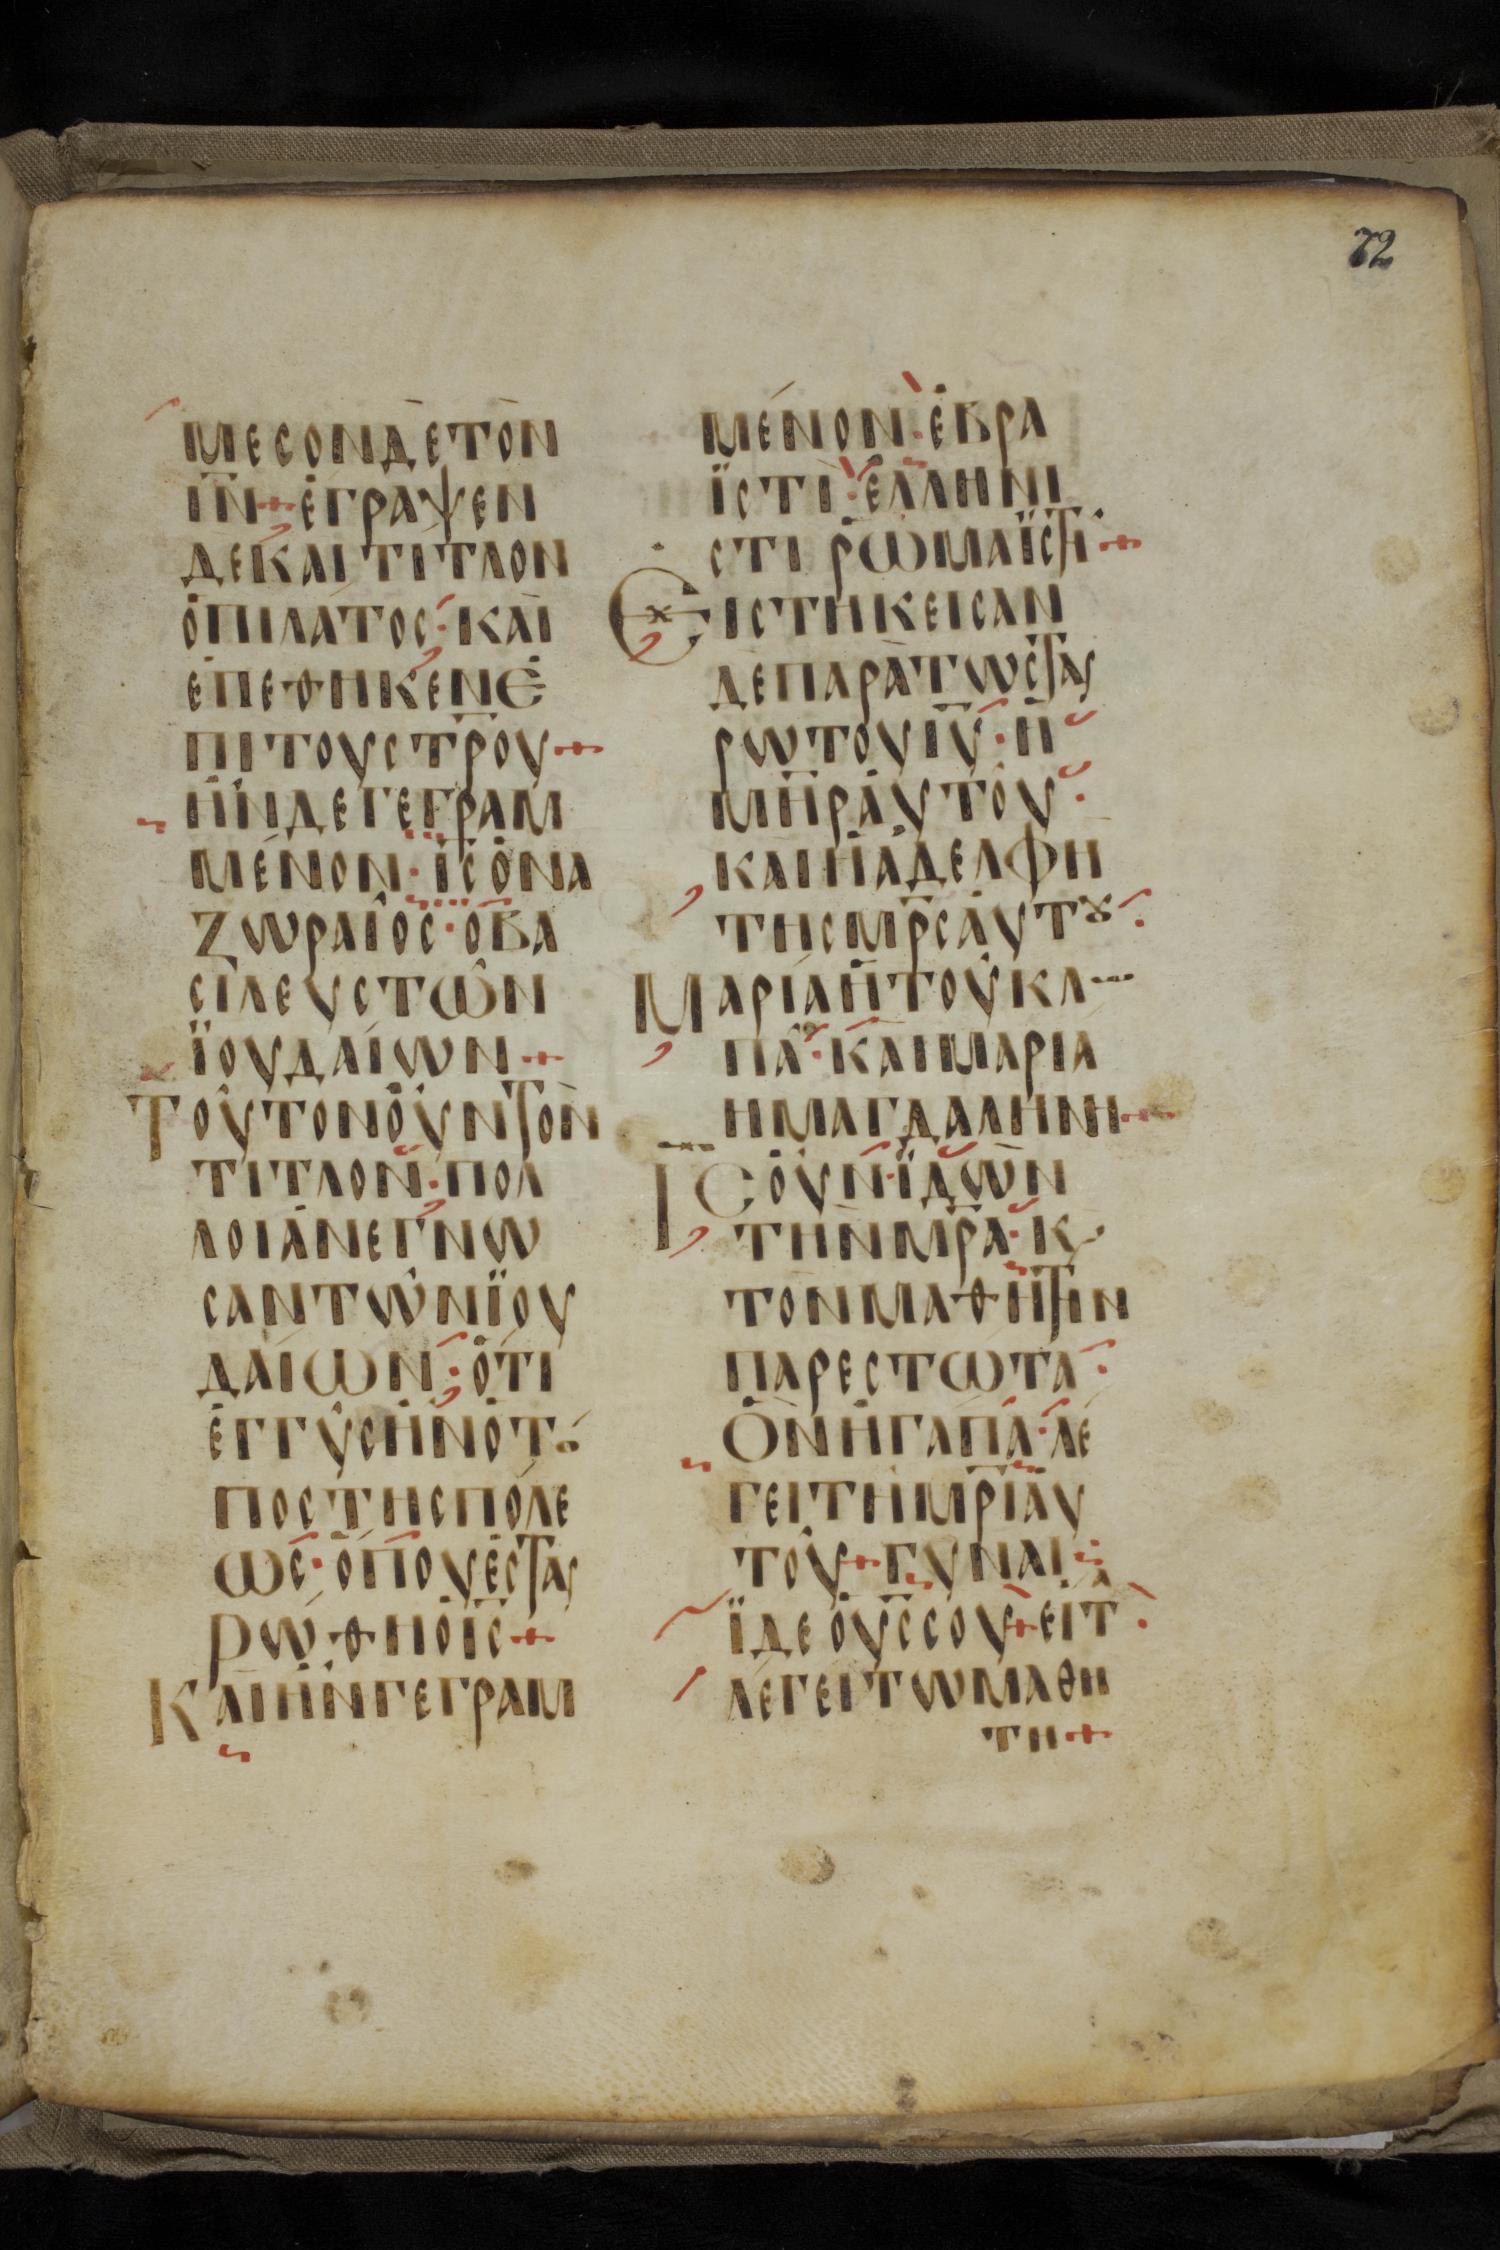 72
μεσονδὲτὸν
ιν̅+ἔγραψεν
δεκαιτίτλον
ὁπιλάτος·καὶ
ἐπεθηκενἐ
πιτουστρ̅ου+
ἦνδεγεγραμ
μένον·ι̅σ̅ὁνα
ζωραῖος·ὁβα
σιλευστῶν
ϊουδαίων+
Τοῦτονοὖντὸν
τίτλον·πολ
λοιἀνεγνω
σαντῶνϊου
δαίων·ὅτι
ἐγγῦσἦνὁτό
ποστησπόλε
ως·ὅπουἐσταυ
ρώθηὁι̅σ̅+
Καὶἦνγεγραμ
μένον·ἑβρα
ϊστὶ·ἑλληνι
στὶῥωμαϊστὶ+
Ειστηκεισαν
δεπαρὰτωσταυ
ρωτουι̅υ̅·ἡ
μη̅ρἀυτοῦ·
καιἡἀδελφη
τησμρ̅σἀυτȣ·
Μαρίαἡτοῦκλω
πᾶ·καιμαρια
ημαγδαληνη+
Ι̅Σ̅οὖν·ϊδὼν
τὴνμρ̅α·κ,
τὸνμαθητὴν
παρεστῶτα·
Ὃνἠγάπα·λέ
γειτημρ̅ιἀυ
τοῦ+γυναι·
ϊδεὁυσ̅σου+εἶτα·
λέγειτωμαθη
τη+